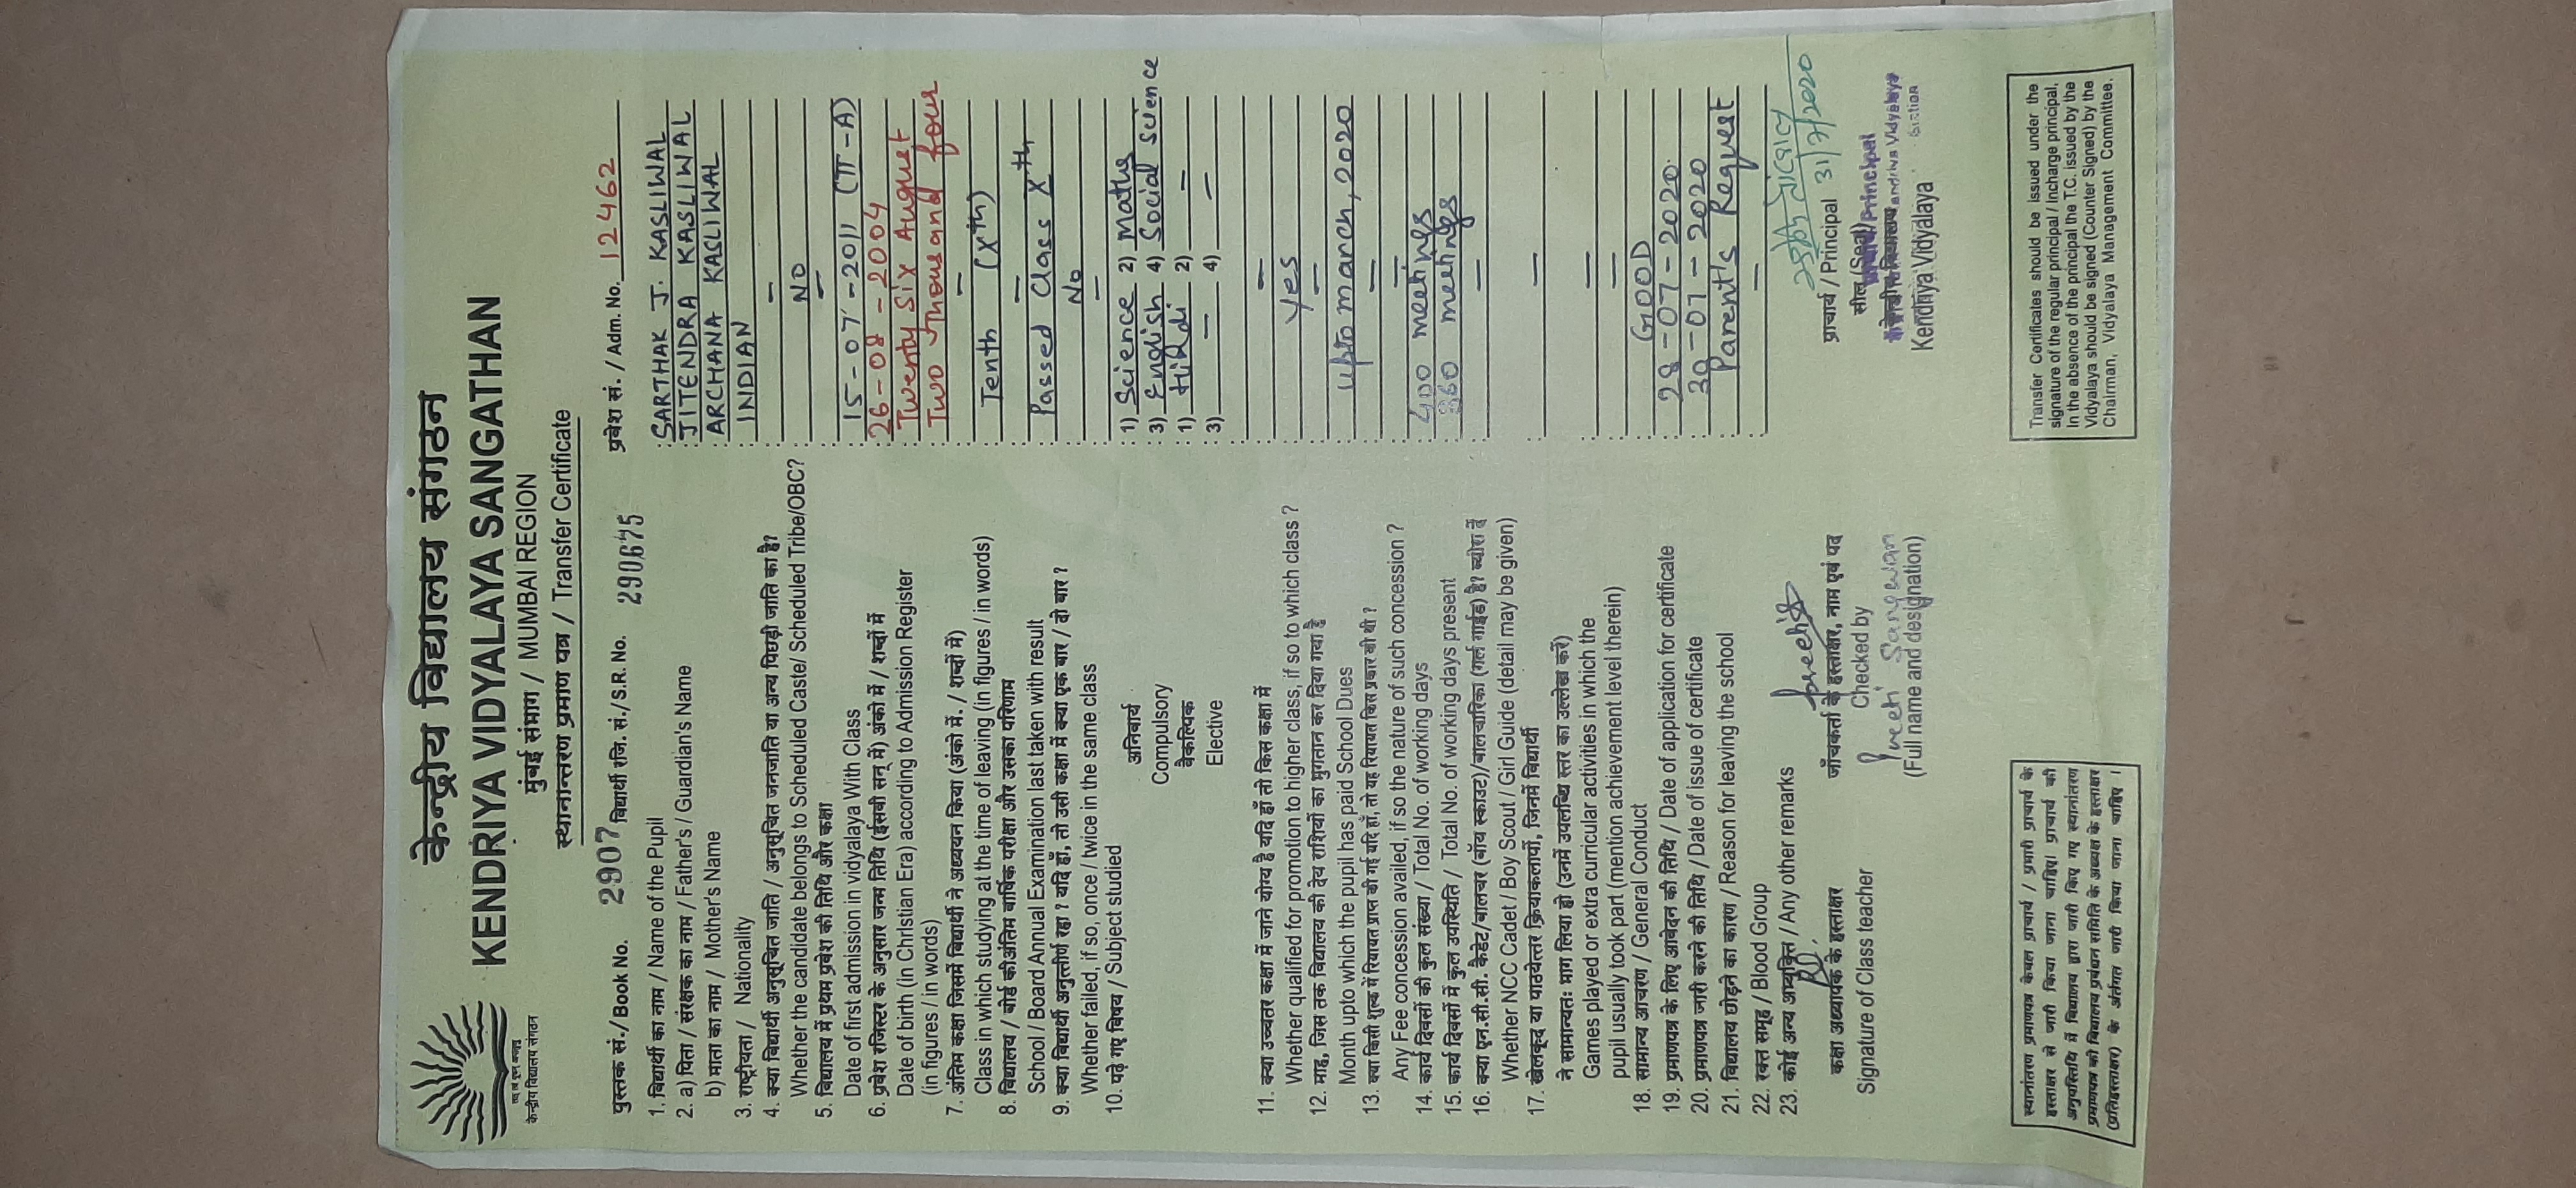 केन्द्रीय विद्यालय संगठन
KENDRIYA VIDYALAYA SANGATHAN
मुंबई संभाग / MUMBAI REGION
स्थानान्तरण प्रमाण पत्र / Transfer Certificate
केन्द्रीय विद्यालय संगठन
पुस्तक सं./Book No. 2907 विद्यार्थी रजि. सं./S.R. No. 290675 प्रवेश सं. / Adm. No. 12462
1. विद्यार्थी का नाम / Name of the Pupil : SARTHAK J. KASLIWAL
2. a) पिता / संरक्षक का नाम / Father's / Guardian's Name : JITENDRA KASLIWAL
b) माता का नाम / Mother's Name : ARCHANA KASLIWAL
3. राष्ट्रीयता / Nationality : INDIAN
4. क्या विद्यार्थी अनुसूचित जाति / अनुसूचित जनजाति या अन्य पिछड़ी जाति का है? : —
Whether the candidate belongs to Scheduled Caste/ Scheduled Tribe/OBC? : NO
5. विद्यालय में प्रथम प्रवेश की तिथि और कक्षा : —
Date of first admission in vidyalaya With Class : 15-07-2011 (II-A)
6. प्रवेश रजिस्टर के अनुसार जन्म तिथि (ईसवी सन् में) अंको में / शब्दों में : 26-08-2004
Date of birth (in Christian Era) according to Admission Register : Twenty Six August
(in figures / in words) : Two Thousand four
7. अंतिम कक्षा जिसमें विद्यार्थी ने अध्ययन किया (अंको में. / शब्दों में) : —
Class in which studying at the time of leaving (in figures / in words) : Tenth (Xth)
8. विद्यालय / बोर्ड की अंतिम वार्षिक परीक्षा और उसका परिणाम : —
School / Board Annual Examination last taken with result : Passed Class Xth
9. क्या विद्यार्थी अनुत्तीर्ण रहा ? यदि हाँ, तो उसी कक्षा में क्या एक बार / दो बार ? : No
Whether failed, if so, once / twice in the same class : —
10. पढ़े गए विषय / Subject studied
अनिवार्य : 1) Science 2) Maths
Compulsory : 3) English 4) Social Science
वैकल्पिक : 1) Hindi 2) —
Elective : 3) — 4) —
11. क्या उच्चतर कक्षा में जाने योग्य है यदि हाँ तो किस कक्षा में : —
Whether qualified for promotion to higher class, if so to which class ? : Yes
12. माह, जिस तक विद्यालय की देय राशियों का भुगतान कर दिया गया है : —
Month upto which the pupil has paid School Dues : upto march, 2020
13. क्या किसी शुल्क में रियायत प्राप्त की गई यदि हाँ, तो यह रियायत किस प्रकार की थी ? : —
Any Fee concession availed, if so the nature of such concession ? : —
14. कार्य दिवसों की कुल संख्या / Total No. of working days : 400 meetings
15. कार्य दिवसों में कुल उपस्थिति / Total No. of working days present : 360 meetings
16. क्या एन.सी.सी. कैडेट/बालचर (बॉय स्काउट)/बालचारिका (गर्ल गाईड) है? ब्योरा दें : —
Whether NCC Cadet / Boy Scout / Girl Guide (detail may be given)
17. खेलकूद या पाठयेत्तर क्रियाकलापों, जिनमें विद्यार्थी : —
ने सामान्यतः भाग लिया हो (उनमें उपलब्धि स्तर का उल्लेख करें)
Games played or extra curricular activities in which the : —
pupil usually took part (mention achievement level therein) : —
18. सामान्य आचरण / General Conduct : GOOD
19. प्रमाणपत्र के लिए आवेदन की तिथि / Date of application for certificate : 28-07-2020
20. प्रमाणपत्र जारी करने की तिथि / Date of issue of certificate : 30-07-2020
21. विद्यालय छोड़ने का कारण / Reason for leaving the school : Parent's Request
22. रक्त समूह / Blood Group : —
23. कोई अन्य अभ्युक्ति / Any other remarks
31/7/2020
कक्षा अध्यापक के हस्ताक्षर जाँचकर्ता के हस्ताक्षर, नाम एवं पद प्राचार्य / Principal
Signature of Class teacher Checked by सील/(Seal)
Preeti Sangwan
(Full name and designation) Kendriya Vidyalaya
स्थानांतरण प्रमाणपत्र केवल प्राचार्य / प्रभारी प्राचार्य के
हस्ताक्षर से जारी किया जाना चाहिए। प्राचार्य की
अनुपस्थिति में विद्यालय द्वारा जारी किए गए स्थानांतरण
प्रमाणपत्र को विद्यालय प्रबंधन समिति के अध्यक्ष के हस्ताक्षर
(प्रतिहस्ताक्षर) के अंर्तगत जारी किया जाना चाहिए ।
Transfer Certificates should be issued under the
signature of the regular principal / Incharge principal,
In the absence of the principal the T.C. issued by the
Vidyalaya should be signed (Counter Signed) by the
Chairman, Vidyalaya Management Committee.